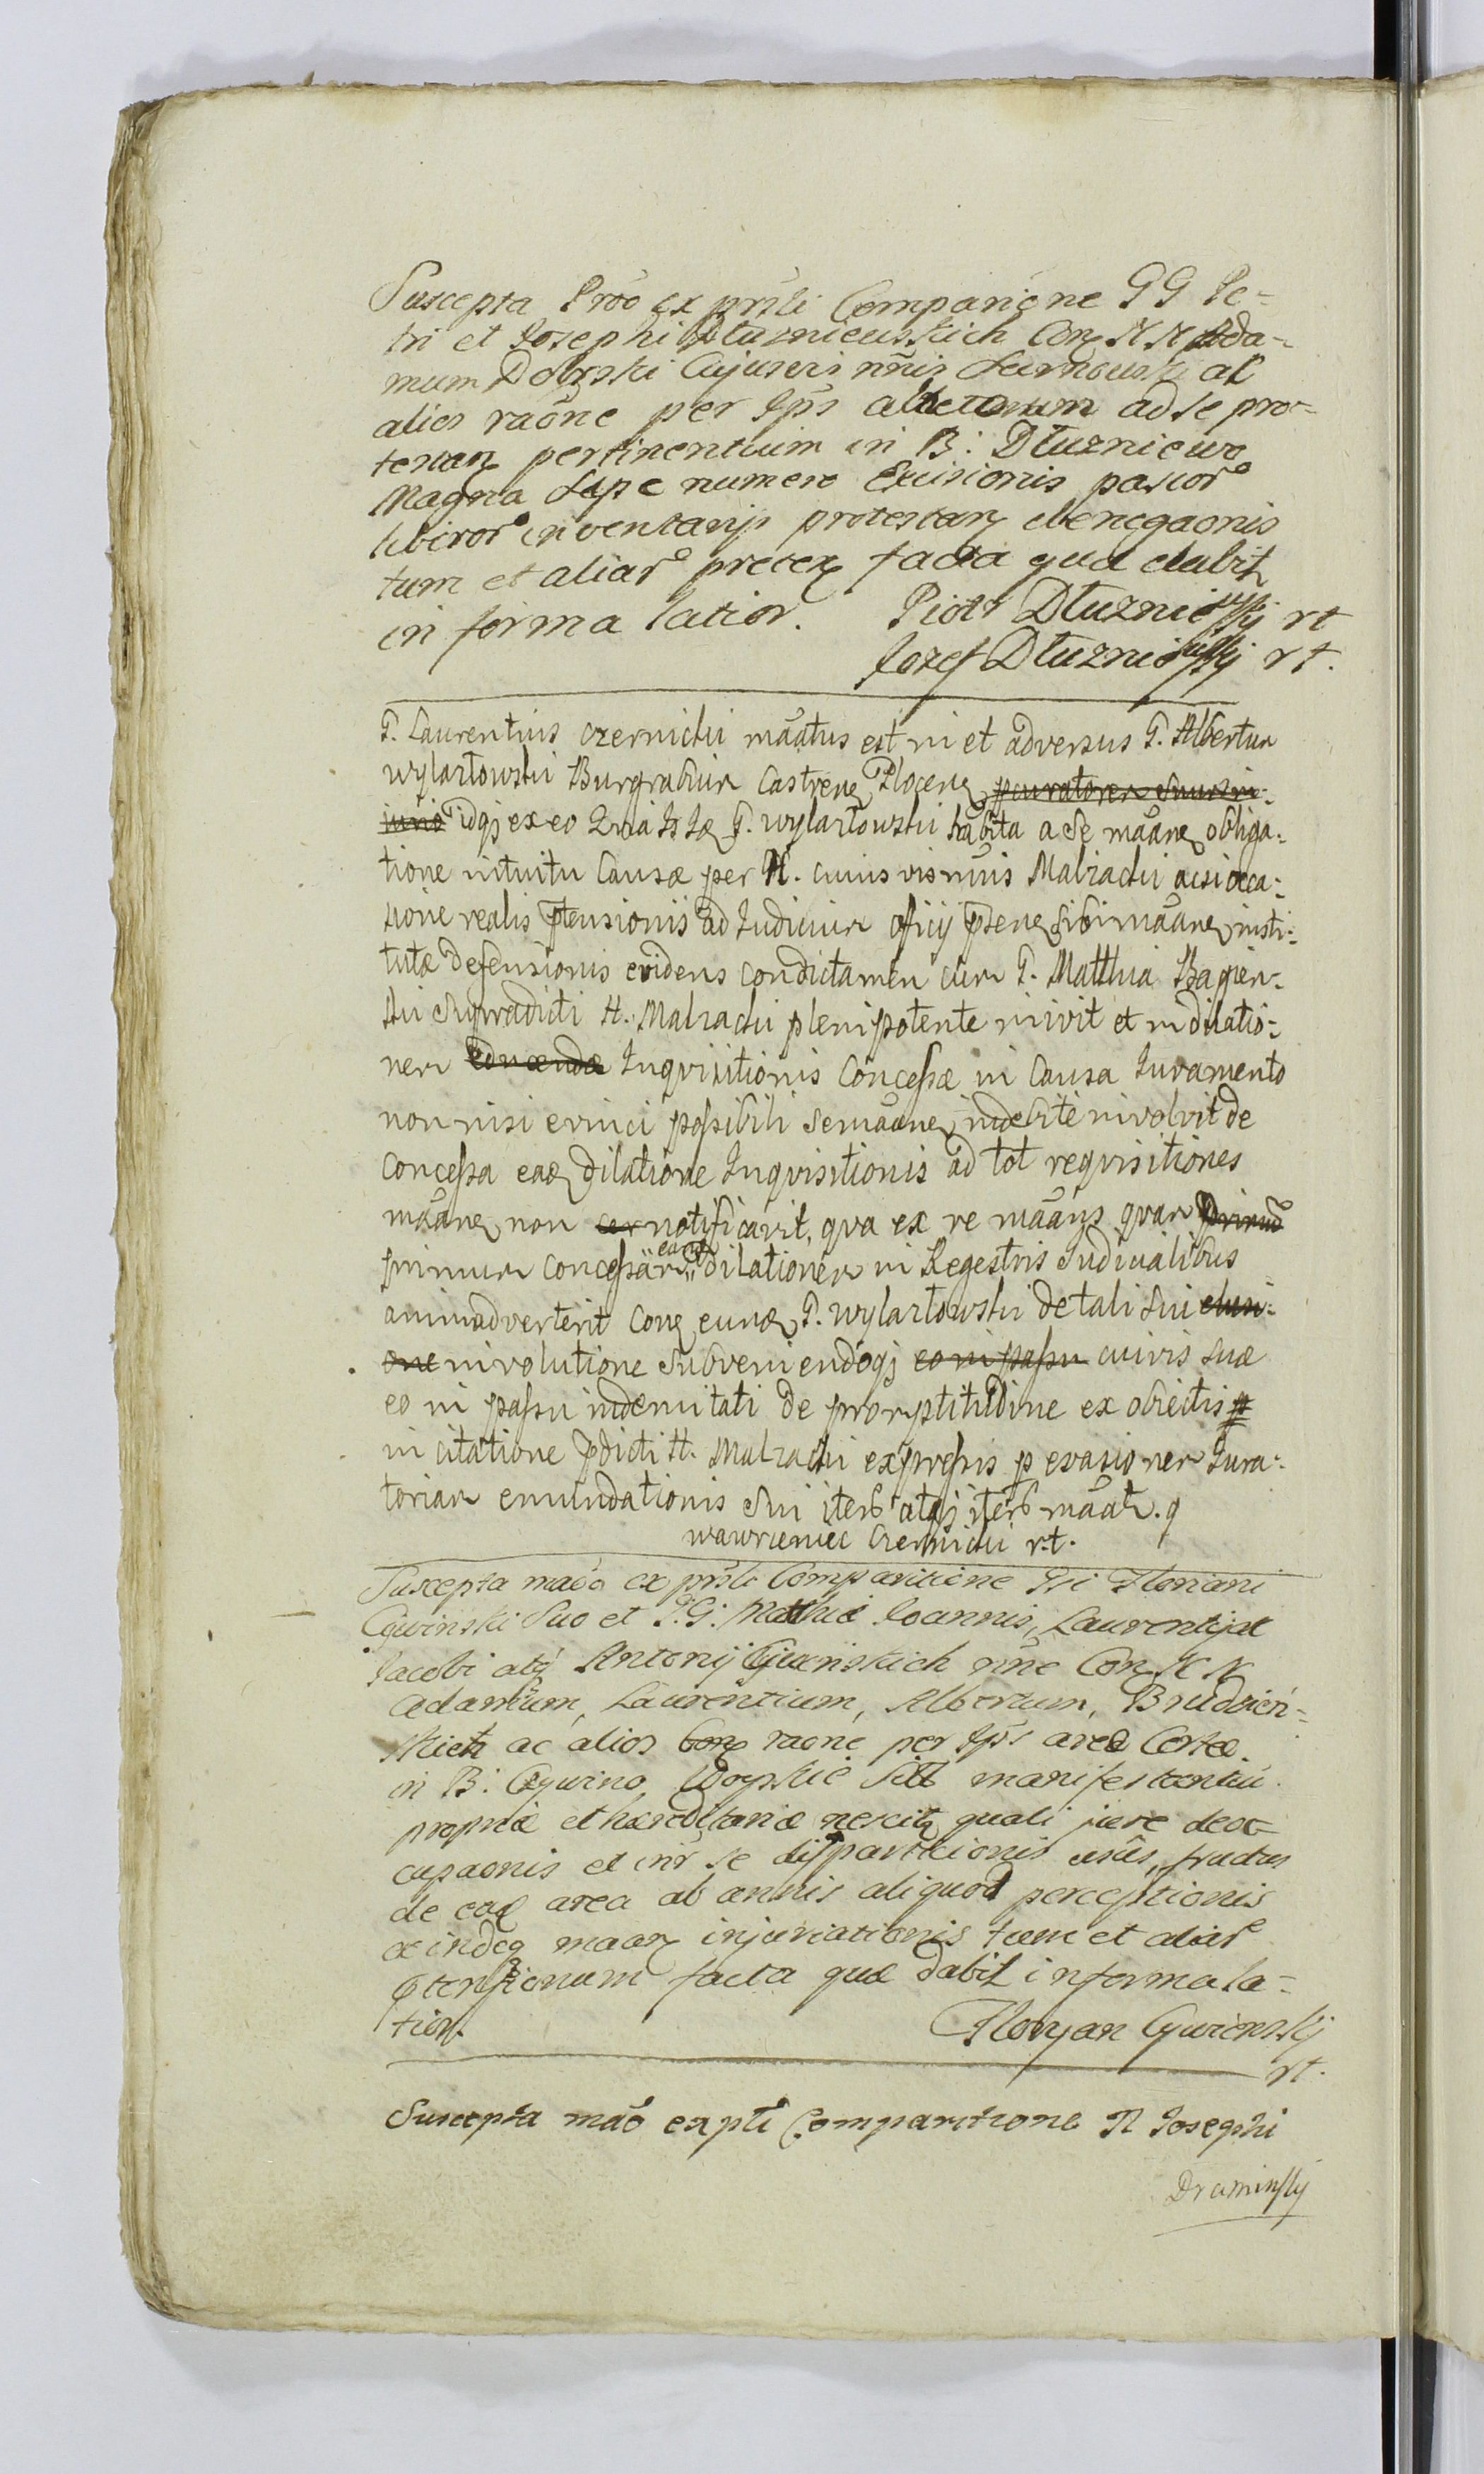 Suscepta Prõo ex prñsti Comparicõne GG Pe=
tri et Josephi Dłuzniewskich Con N N Ada=
mum Dobrski Cujusvis nñis ac
alios raõne per Ips ad se pro=
pertinentium in B: Dłuzniewo
Magna numero Excisionis
inventarij protestan denegaonis
tum et aliar pretex facta qua dabit
in forma latior. Piotr Dłuzniewskj rt
Jozef Dłuzniewskj rt.
G. Laurentius Czernicki mãatus est in et adversus G. Albertum
Wylazłowski Burgrabium Castrens Plocens procuratorem suum in=
idqs ex eo Quia Is Iđ G. Wylazłowski habita a Se mãane obliga=
tione intuitu Causæ per N. cuius vis nñis Malzacki acsi occa=
sione realis ptensionis ad Iudicium officij psens sibi mãane insti=
tutæ defensionis evidens condictamen cum G. Matthia Bagien=
ski supradicti N. Malzacki plenipotente inivit et in dilatio=
nem educendæ Inqvisitionis Concessæ in Causa Iuramento
non nisi evinci possibili se mãane indebite involvit de
concessa eađ dilatione Inqvisitionis ad tot reqvisitiones
mãane non cer notificavit, qva ex re mãans qvam primum
primum concessam eanđ dilationem in Regestris Iudicialibus
animadverterit Con eunđ G. Wylazłowski de tali sui elusi=
one involutione subveniendoqs eo in passu cuivis suæ
eo in passu indemnitati de promptitudine ex obiectis
in citatione pdicti N. Malzacki expressis p evasionem Iura=
toriam emundationis sui iterũ atqs iterũ mãat. q
Wawrzeniec Czernicki r.t.
Suscepta maõo ex prñsti Comparitione Gsi Floriani
Cywinski Suo et G.G. Matthiæ Joannis, Laurentij ac
Jacobi atq Antonij Cywinskich nñe Con N N
Adamum, Laurentium, Albertum, Brudzien=
skich ac alios Con raõne per Ips areæ Certæ
in B: Cywino Woyskie Sitæ manifestantiũ
propriæ et hæreditariæ nescit quali jure deoc=
cupaonis et intr se dispartitionis usûs, fructus
de eađ area ab annis aliquod perceptionis
æ indeq maan injuriationis tum et aliar
ptensionum facta quæ dabit in forma la=
tior. Floryan Cywienskj
rt.
Suscepta maõ ex pti Comparitione N Josephi
Draminskj